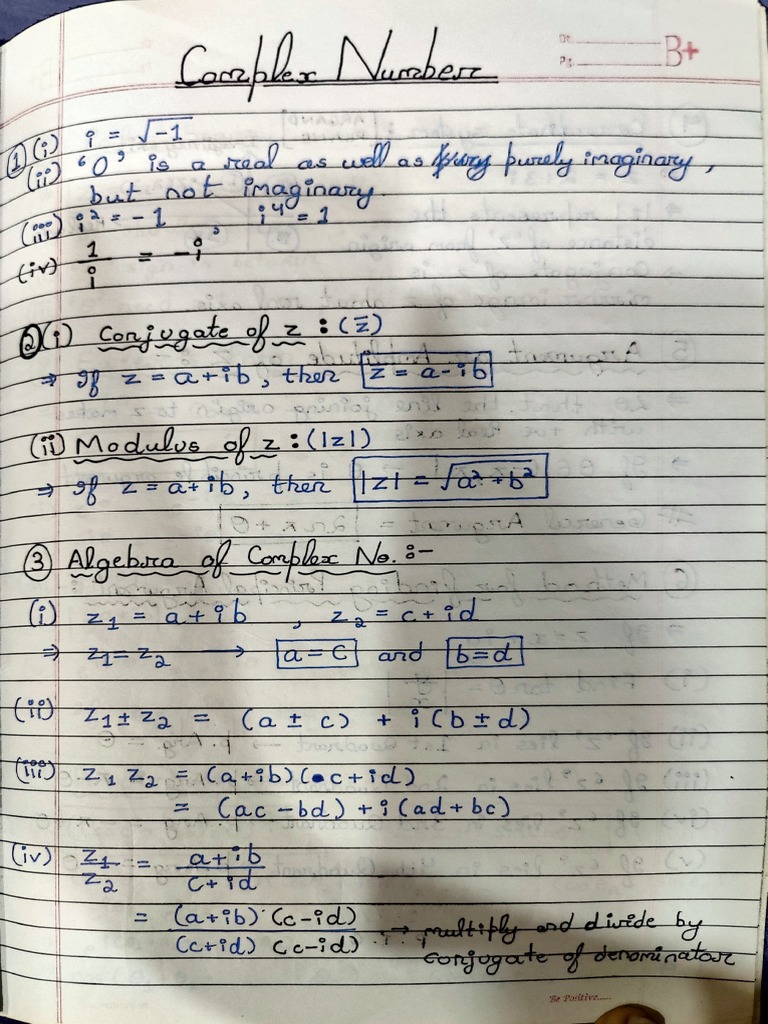 Complex Number
Dt.
Pg.
B+
① (i) i = √-1
(ii) '0' is a real as well as purely imaginary,
but not imaginary.
(iii) i² = -1 , i⁴ = 1
(iv) 1/i = -i
② (i) Conjugate of z : (z̄)
⇒ If z = a+ib, then z = a-ib
(ii) Modulus of z : (|z|)
⇒ If z = a+ib, then |z| = √a²+b²
③ Algebra of Complex No. :-
(i) z₁ = a+ib , z₂ = c+id
⇒ z₁ = z₂ → a = c and b = d
(ii) z₁ ± z₂ = (a ± c) + i(b ± d)
(iii) z₁ z₂ = (a+ib)(c+id)
= (ac - bd) + i(ad + bc)
(iv) z₁/z₂ = a+ib/c+id
= (a+ib) (c-id)/(c+id) (c-id) → multiply and divide by
conjugate of denominator
Be Positive.....